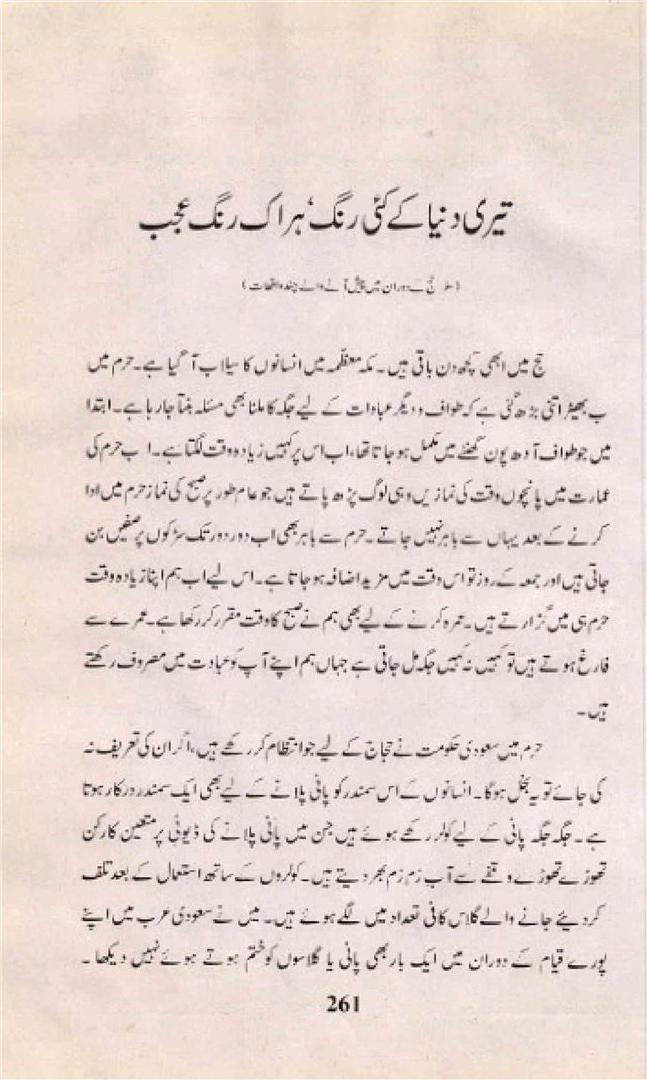 تیری دنیا کے کئی رنگ، ہر اک رنگ عجب
(سفر حج کے دوران میں پیش آنے والے چند واقعات)
حج میں ابھی کچھ دن باقی ہیں۔ مکہ معظّمہ میں انسانوں کا سیلاب آ گیا ہے۔ حرم میں
ب بھیڑ اتنی بڑھ گئی ہے کہ طواف و دیگر عبادات کے لیے جگہ کا ملنا بھی مسئلہ بنتا جا رہا ہے۔ ابتدا
میں جو طواف آدھ پون گھنٹے میں مکمل ہو جاتا تھا، اب اس پر کہیں زیادہ وقت لگتا ہے۔ اب حرم کی
عمارت میں پانچوں وقت کی نمازیں وہی لوگ پڑھ پاتے ہیں جو عام طور پر صبح کی نماز حرم میں ادا
کرنے کے بعد یہاں سے باہر نہیں جاتے۔ حرم سے باہر بھی اب دور دور تک سڑکوں پر صفیں بن
جاتی ہیں اور جمعہ کے روز تو اس وقت میں مزید اضافہ ہو جاتا ہے۔ اس لیے اب ہم اپنا زیادہ وقت
حرم ہی میں گزارتے ہیں۔ عمرہ کرنے کے لیے بھی ہم نے صبح کا وقت مقرر کر رکھا ہے۔ عمرے سے
فارغ ہوتے ہیں تو کہیں نہ کہیں جگہ مل جاتی ہے جہاں ہم اپنے آپ کو عبادت میں مصروف رکھتے
ہیں۔
حرم میں سعودی حکومت نے حجاج کے لیے جو انتظام کر رکھے ہیں، اگر ان کی تعریف نہ
کی جائے تو یہ بخل ہوگا۔ انسانوں کے اس سمندر کو پانی پلانے کے لیے بھی ایک سمندر درکار ہوتا
ہے۔ جگہ جگہ پانی کے لیے کولر رکھے ہوئے ہیں جن میں پانی پلانے کی ڈیوٹی پر متعین کارکن
تھوڑے تھوڑے وقفے سے آب زم زم بھر دیتے ہیں۔ کولروں کے ساتھ استعمال کے بعد تلف
کر دیئے جانے والے گلاس کافی تعداد میں لگے ہوئے ہیں۔ میں نے سعودی عرب میں اپنے
پورے قیام کے دوران میں ایک بار بھی پانی یا گلاسوں کو ختم ہوتے ہوئے نہیں دیکھا۔
261